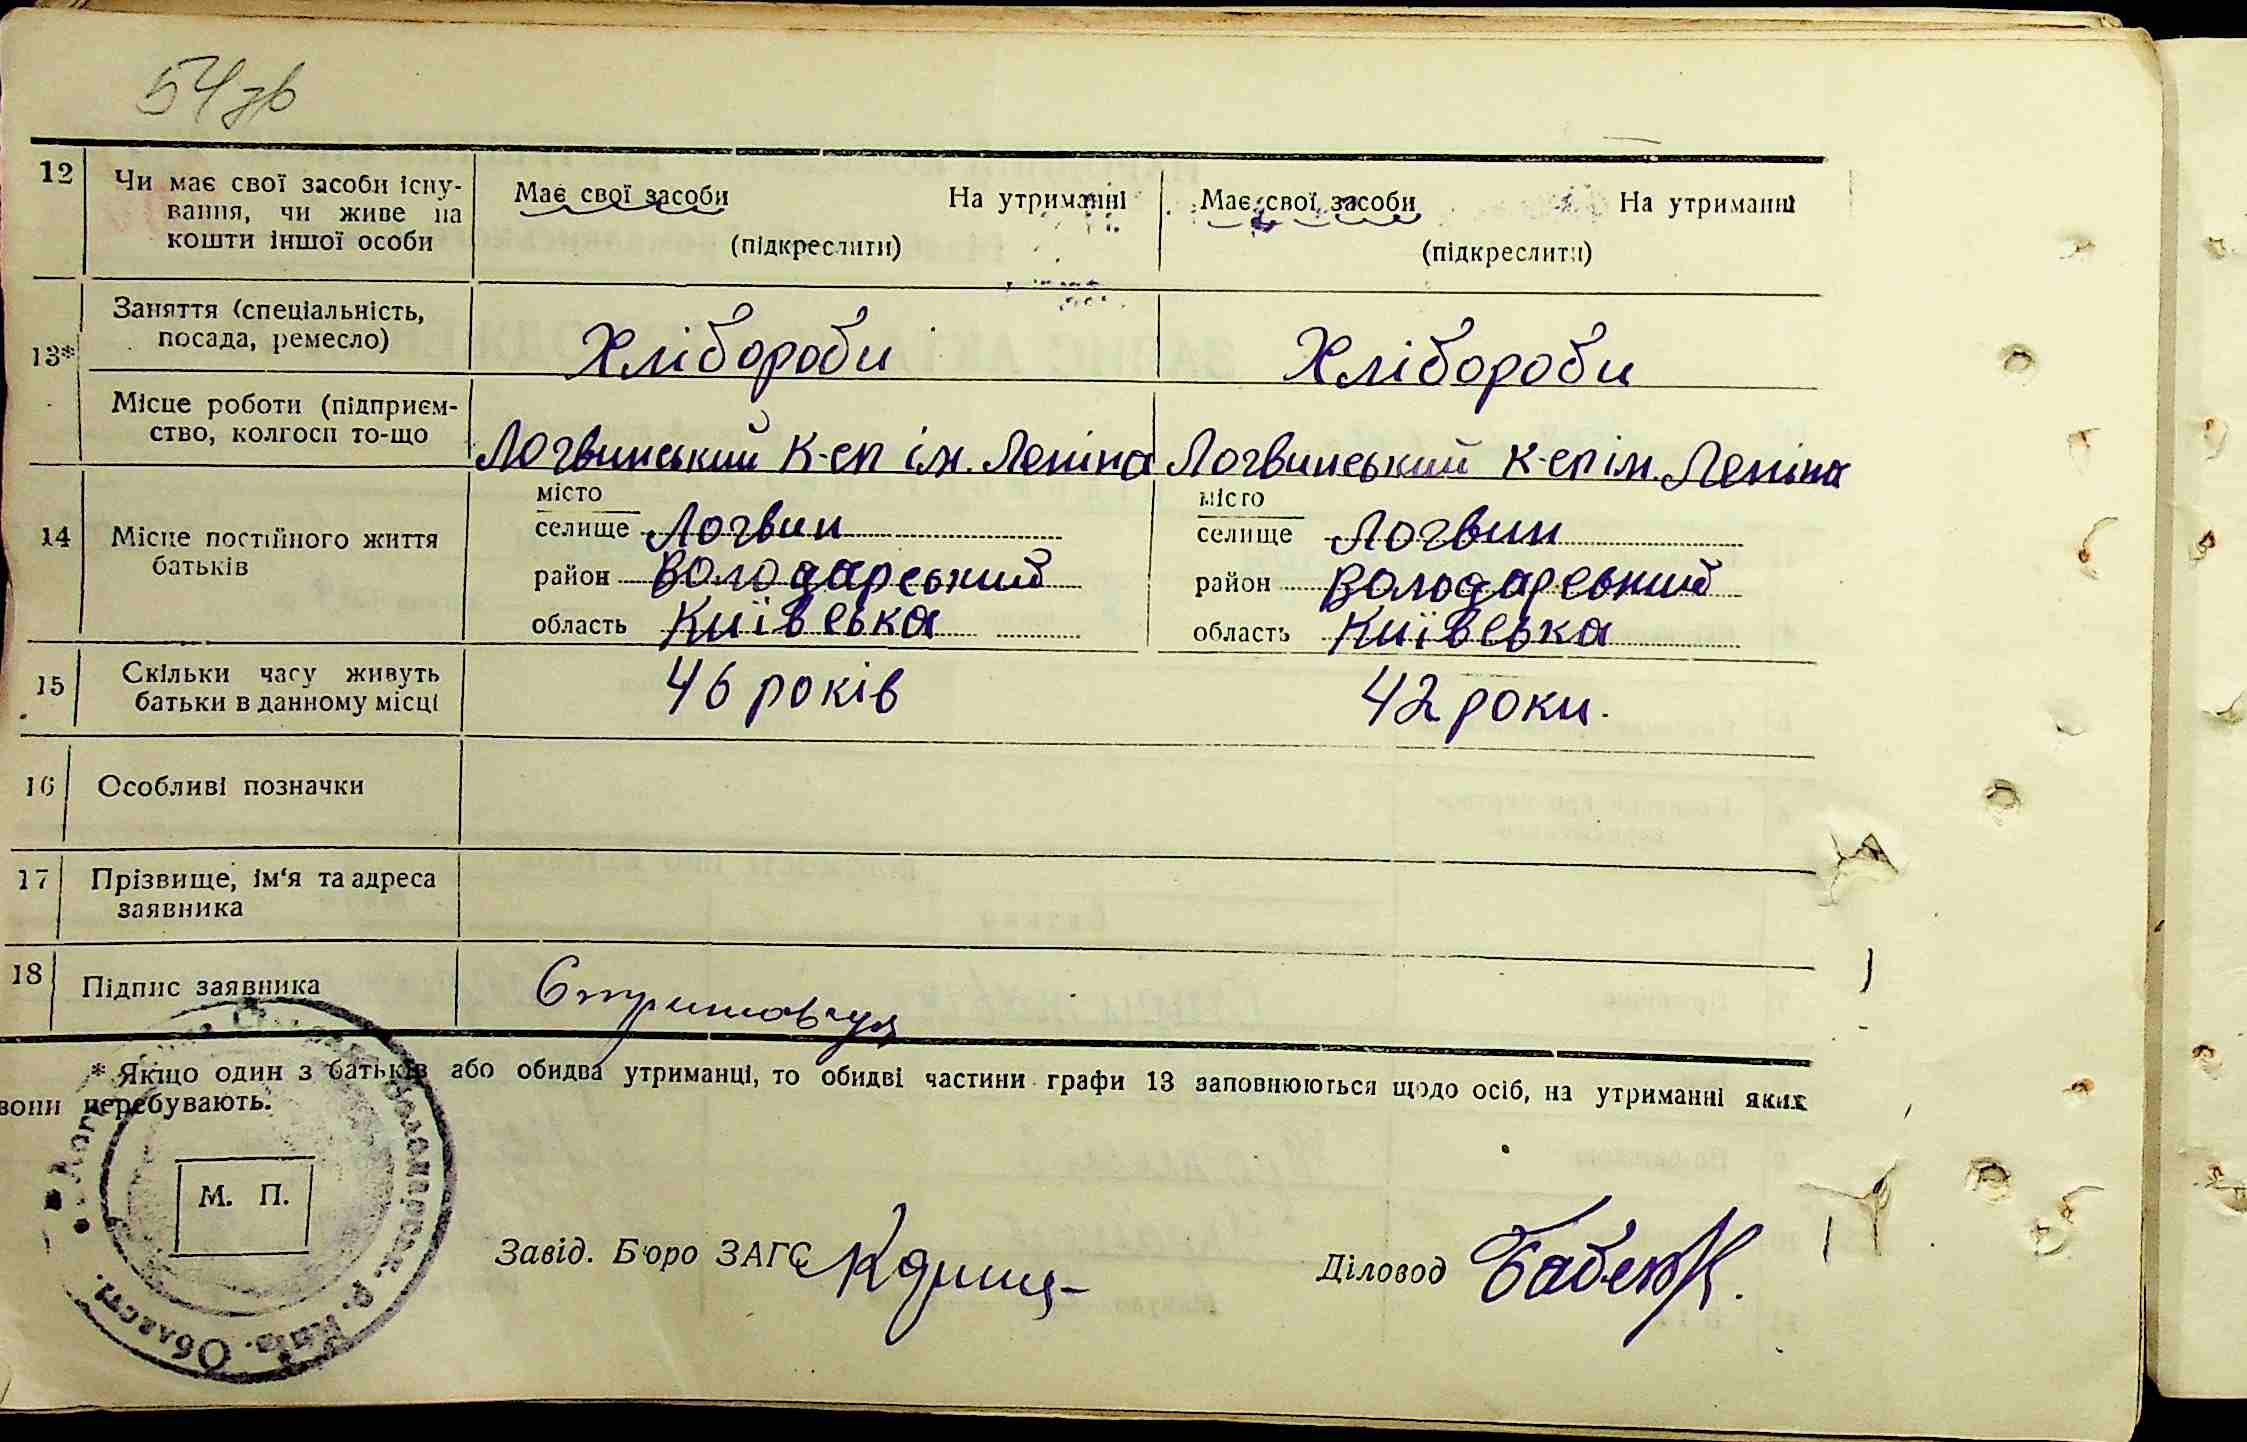 54 зв
12
Чи має свої засоби існу-
вання, чи живе на
кошти іншої особи
Має свої засоби На утриманні
(підкреслити)
Має свої засоби На утриманні
(підкреслити)
13*
Заняття (спеціальність,
посада, ремесло)
Хлібороби
Хлібороби
Місце роботи (підприєм-
ство, колгосп то-що
Логвинський К-сп ім. Леніна
Логвинський К-сп ім. Леніна
14
Місце постійного життя
батьків
місто
селище Логвин
район Володарський
область Київська
місто
селище Логвин
район Володарський
область Київська
15
Скільки часу живуть
батьки в данному місці
46 років
42 роки.
16
Особливі позначки
17
Прізвище, ім'я та адреса
заявника
18
Підпис заявника
* Якщо один з батьків або обидва утриманці, то обидві частини графи 13 заповнюються щодо осіб, на утриманні яких
вони перебувають.
М. П.
Володарськ. р. Київ. Області.
Завід. Бюро ЗАГС
Діловод